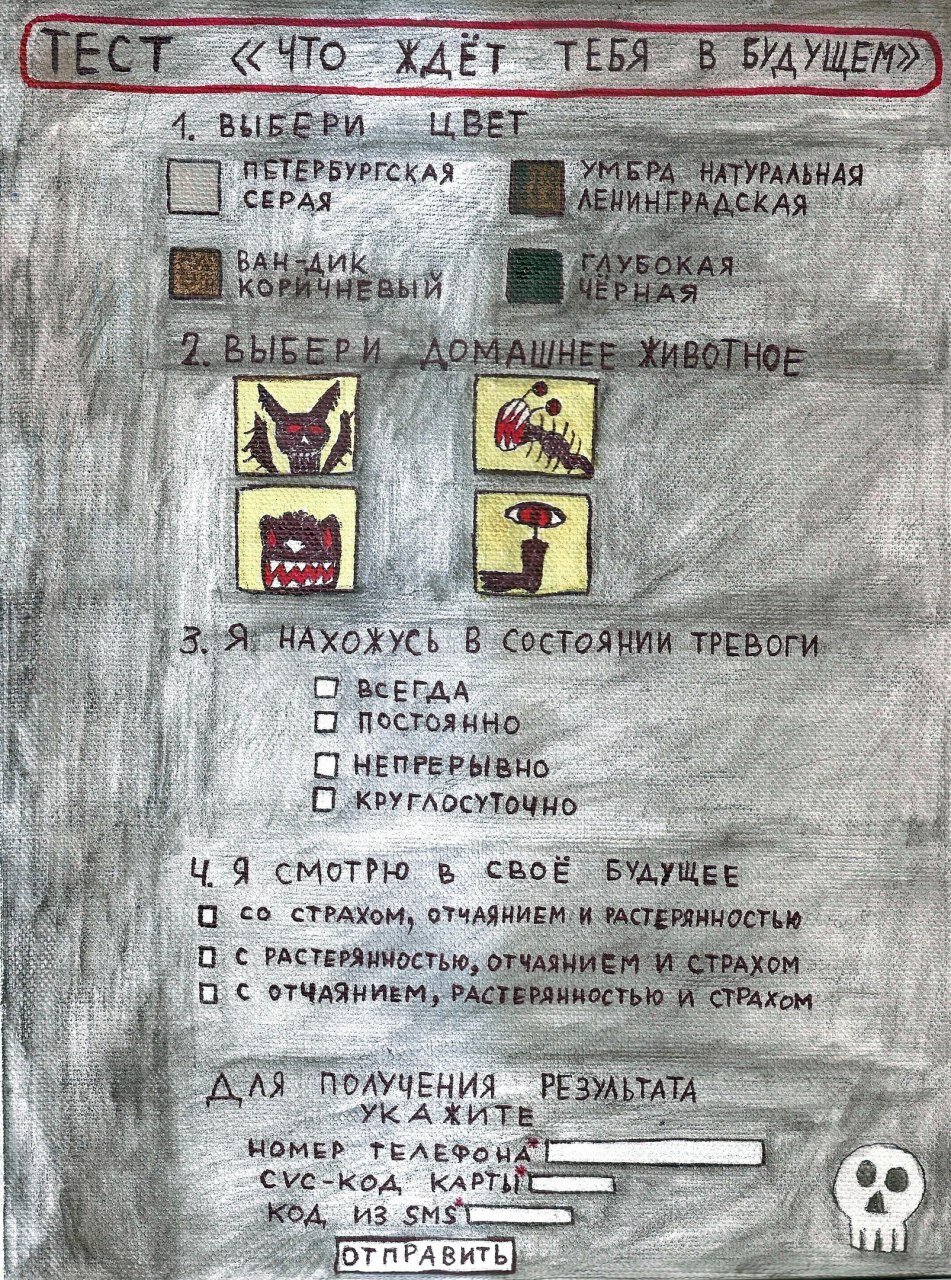 ТЕСТ «ЧТО ЖДЁТ ТЕБЯ В БУДУЩЕМ»
1. ВЫБЕРИ ЦВЕТ
ПЕТЕРБУРГСКАЯ
СЕРАЯ
УМБРА НАТУРАЛЬНАЯ
ЛЕНИНГРАДСКАЯ
ВАН-ДИК
КОРИЧНЕВЫЙ
ГЛУБОКАЯ
ЧЁРНАЯ
2. ВЫБЕРИ ДОМАШНЕЕ ЖИВОТНОЕ
3. Я НАХОЖУСЬ В СОСТОЯНИИ ТРЕВОГИ
ВСЕГДА
ПОСТОЯННО
НЕПРЕРЫВНО
КРУГЛОСУТОЧНО
4. Я СМОТРЮ В СВОЁ БУДУЩЕЕ
СО СТРАХОМ, ОТЧАЯНИЕМ И РАСТЕРЯННОСТЬЮ
С РАСТЕРЯННОСТЬЮ, ОТЧАЯНИЕМ И СТРАХОМ
С ОТЧАЯНИЕМ, РАСТЕРЯННОСТЬЮ И СТРАХОМ
ДЛЯ ПОЛУЧЕНИЯ РЕЗУЛЬТАТА
УКАЖИТЕ
НОМЕР ТЕЛЕФОНА*
CVC-КОД КАРТЫ*
КОД ИЗ SMS*
ОТПРАВИТЬ